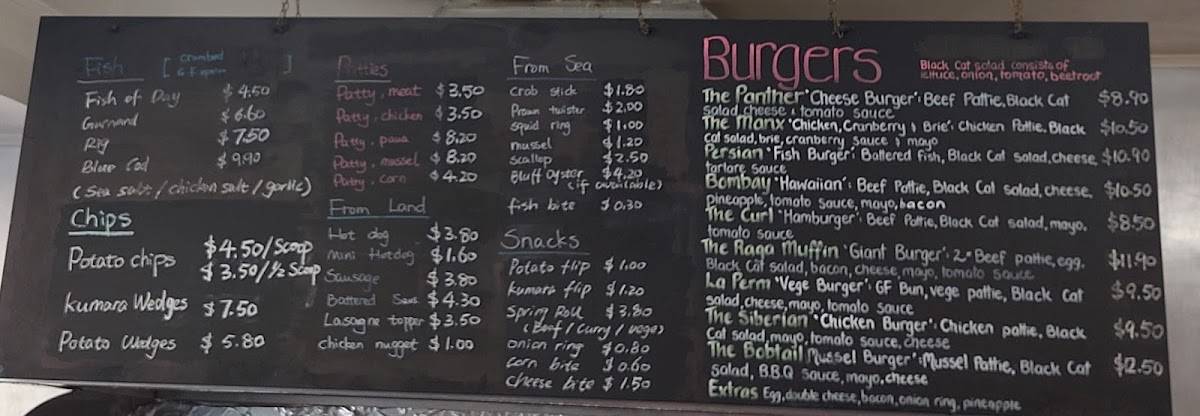 Fish [ Crumbed ]
G.F option
Fish of Day $4.50
Gurnard $6.60
Rig $7.50
Blue Cod $9.90
(Sea salt / chicken salt / garlic)
Chips
Potato chips $4.50/Scoop
$3.50/½ Scoop
Kumara Wedges $7.50
Potato Wedges $5.80
Patties
Patty, meat $3.50
Patty, chicken $3.50
Patty, paua $8.20
Patty, mussel $8.20
Patty, corn $4.20
From Land
Hot dog $3.80
mini Hotdog $1.60
Sausage $3.80
Battered Saus $4.30
Lasagne topper $3.50
chicken nugget $1.00
From Sea
Crab stick $1.80
Prawn twister $2.00
squid ring $1.00
mussel $1.20
Scallop $2.50
Bluff Oyster $4.20
(if available)
fish bite $0.30
Snacks
Potato flip $1.00
kumara flip $1.20
Spring Roll $3.80
(Beef / Curry / Vege)
onion ring $0.80
corn bite $0.60
cheese bite $1.50
Burgers
Black Cat salad consists of
lettuce, onion, tomato, beetroot
The Panther 'Cheese Burger': Beef Pattie, Black Cat $8.90
salad, cheese & tomato sauce
The Manx 'Chicken, Cranberry & Brie': Chicken Pattie, Black $10.50
Cat salad, brie, cranberry sauce & mayo
Persian 'Fish Burger': Battered fish, Black Cat salad, cheese, $10.90
tartare sauce
Bombay 'Hawaiian': Beef Pattie, Black Cat salad, cheese, $10.50
pineapple, tomato sauce, mayo, bacon
The Curl 'Hamburger': Beef Pattie, Black Cat salad, mayo, $8.50
tomato sauce
The Raga Muffin 'Giant Burger': 2x Beef pattie, egg, $11.90
Black Cat salad, bacon, cheese, mayo, tomato sauce
La Perm 'Vege Burger': GF Bun, vege pattie, Black Cat $9.50
salad, cheese, mayo, tomato sauce
The Siberian 'Chicken Burger': Chicken pattie, Black $9.50
Cat salad, mayo, tomato sauce, cheese
The Bobtail 'Mussel Burger': Mussel Pattie, Black Cat $12.50
salad, B.B.Q sauce, mayo, cheese
Extras Egg, double cheese, bacon, onion ring, pineapple